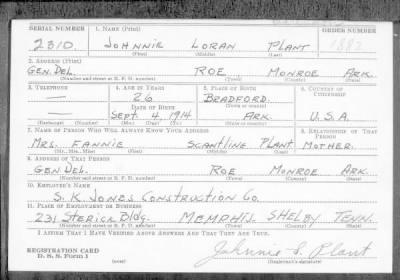 SERIAL NUMBER 1. NAME (Print) ORDER NUMBER
2310 JOHNNIE LORAN PLANT 1882
(First) (Middle) (Last)
2. ADDRESS (Print)
GEN. DEL. ROE MONROE ARK.
(Number and street or R. F. D. number) (Town) (County) (State)
3. TELEPHONE 4. AGE IN YEARS 5. PLACE OF BIRTH 6. COUNTRY OF CITIZENSHIP
— 26 BRADFORD
DATE OF BIRTH (Town or county)
— SEPT. 4 1914 ARK. U.S.A.
(Exchange) (Number) (Mo.) (Day) (Yr.) (State or country)
7. NAME OF PERSON WHO WILL ALWAYS KNOW YOUR ADDRESS 8. RELATIONSHIP OF THAT PERSON
MRS. FANNIE SCANTLINE PLANT MOTHER
(Mr., Mrs., Miss) (First) (Middle) (Last)
9. ADDRESS OF THAT PERSON
GEN DEL. ROE MONROE ARK.
(Number and street or R. F. D. number) (Town) (County) (State)
10. EMPLOYER'S NAME
S. K. JONES CONSTRUCTION CO.
11. PLACE OF EMPLOYMENT OR BUSINESS
231 STERICK BLDG. MEMPHIS SHELBY TENN.
(Number and street or R. F. D. number) (Town) (County) (State)
I AFFIRM THAT I HAVE VERIFIED ABOVE ANSWERS AND THAT THEY ARE TRUE.
REGISTRATION CARD
D. S. S. Form 1 Johnnie L. Plant
(Registrant's signature)